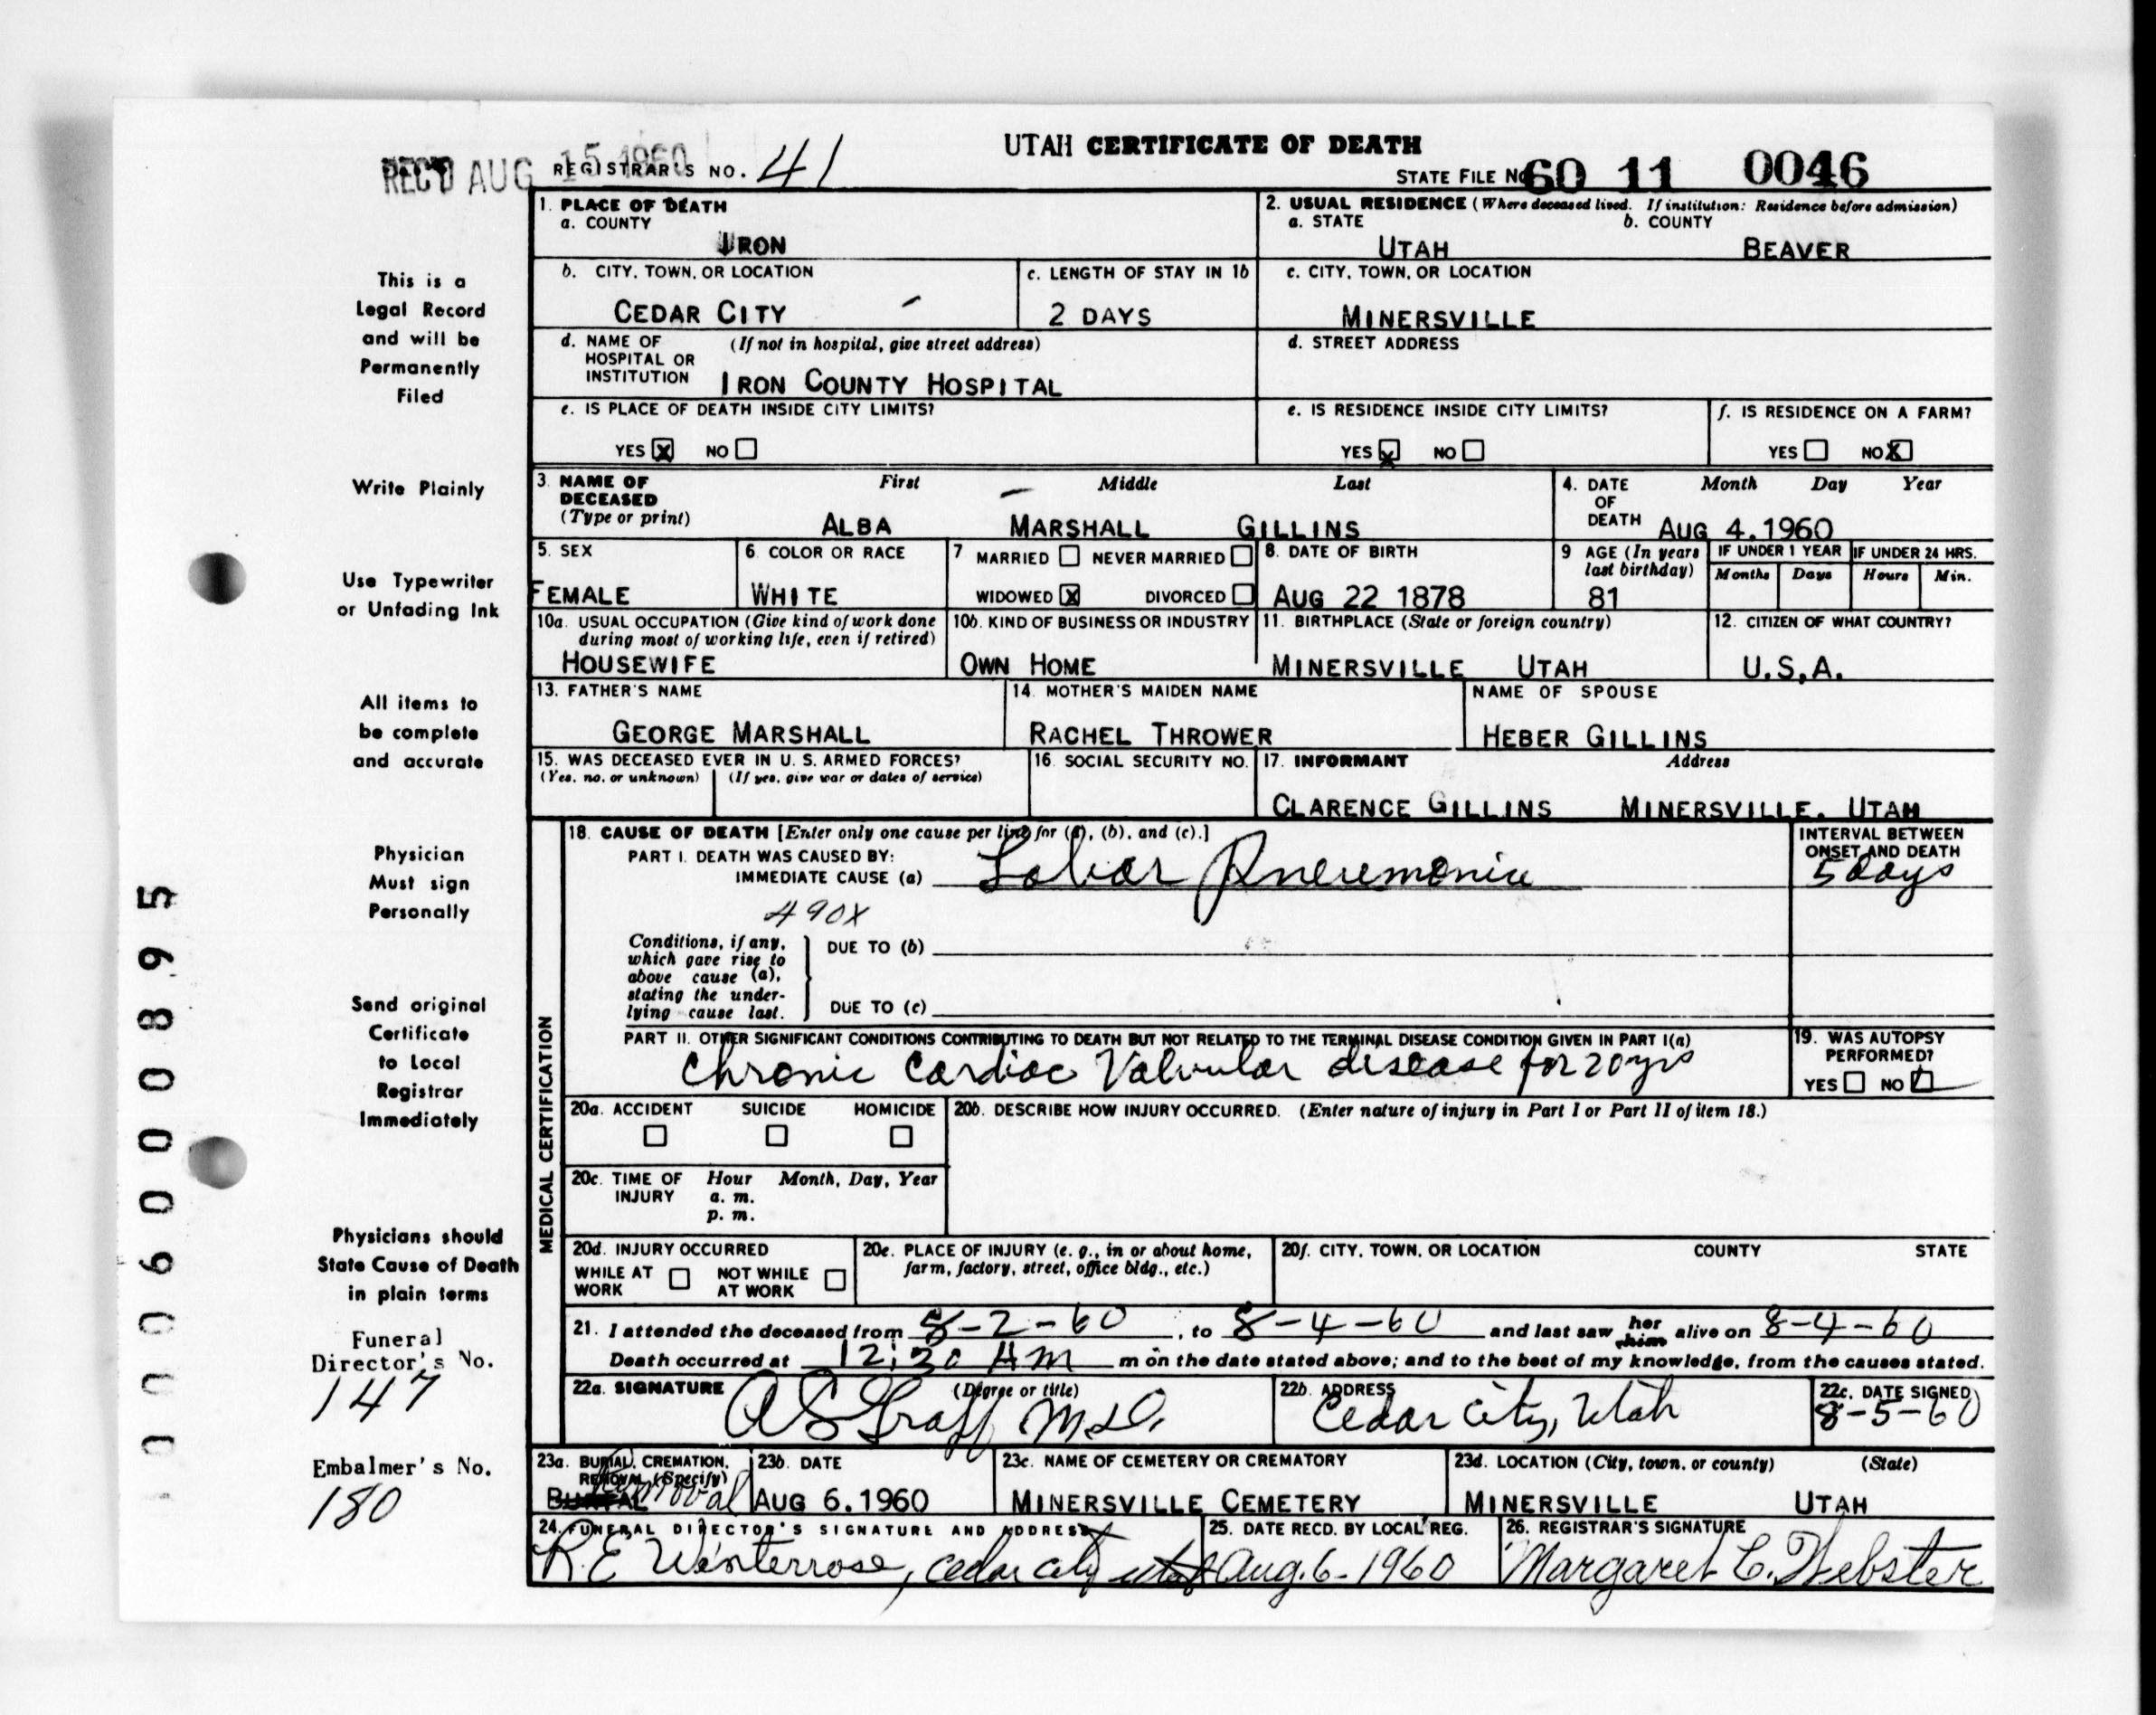 UTAH CERTIFICATE OF DEATH
REC'D AUG 15 1960
REGISTRAR'S NO. 41
STATE FILE NO. 60 11 0046
1. PLACE OF DEATH
a. COUNTY
IRON
2. USUAL RESIDENCE (Where deceased lived. If institution: Residence before admission)
a. STATE b. COUNTY
UTAH BEAVER
b. CITY, TOWN, OR LOCATION
CEDAR CITY
c. LENGTH OF STAY IN 1b
2 DAYS
c. CITY, TOWN, OR LOCATION
MINERSVILLE
d. NAME OF HOSPITAL OR INSTITUTION (If not in hospital, give street address)
IRON COUNTY HOSPITAL
d. STREET ADDRESS
e. IS PLACE OF DEATH INSIDE CITY LIMITS?
YES X NO
e. IS RESIDENCE INSIDE CITY LIMITS?
YES X NO
f. IS RESIDENCE ON A FARM?
YES NO X
3. NAME OF DECEASED (Type or print) First Middle Last
ALBA MARSHALL GILLINS
4. DATE OF DEATH Month Day Year
AUG 4, 1960
5. SEX
FEMALE
6. COLOR OR RACE
WHITE
7 MARRIED NEVER MARRIED
WIDOWED X DIVORCED
8. DATE OF BIRTH
AUG 22 1878
9 AGE (In years last birthday)
81
IF UNDER 1 YEAR IF UNDER 24 HRS.
Months Days Hours Min.
10a. USUAL OCCUPATION (Give kind of work done during most of working life, even if retired)
HOUSEWIFE
10b. KIND OF BUSINESS OR INDUSTRY
OWN HOME
11. BIRTHPLACE (State or foreign country)
MINERSVILLE UTAH
12. CITIZEN OF WHAT COUNTRY?
U.S.A.
13. FATHER'S NAME
GEORGE MARSHALL
14. MOTHER'S MAIDEN NAME
RACHEL THROWER
NAME OF SPOUSE
HEBER GILLINS
15. WAS DECEASED EVER IN U. S. ARMED FORCES?
(Yes, no, or unknown) (If yes, give war or dates of service)
16. SOCIAL SECURITY NO.
17. INFORMANT Address
CLARENCE GILLINS MINERSVILLE, UTAH
MEDICAL CERTIFICATION
18. CAUSE OF DEATH [Enter only one cause per line for (a), (b), and (c).]
PART I. DEATH WAS CAUSED BY:
IMMEDIATE CAUSE (a) Lobar Pneumonia
INTERVAL BETWEEN ONSET AND DEATH
5 days
490X
Conditions, if any, which gave rise to above cause (a), stating the underlying cause last.
DUE TO (b)
DUE TO (c)
PART II. OTHER SIGNIFICANT CONDITIONS CONTRIBUTING TO DEATH BUT NOT RELATED TO THE TERMINAL DISEASE CONDITION GIVEN IN PART I(a)
Chronic Cardiac Valvular disease for 20 yrs
19. WAS AUTOPSY PERFORMED?
YES NO
20a. ACCIDENT SUICIDE HOMICIDE
20b. DESCRIBE HOW INJURY OCCURRED. (Enter nature of injury in Part I or Part II of item 18.)
20c. TIME OF INJURY Hour Month, Day, Year
a. m.
p. m.
20d. INJURY OCCURRED
WHILE AT WORK NOT WHILE AT WORK
20e. PLACE OF INJURY (e. g., in or about home, farm, factory, street, office bldg., etc.)
20f. CITY, TOWN, OR LOCATION COUNTY STATE
21. I attended the deceased from 8-2-60, to 8-4-60 and last saw her him alive on 8-4-60
Death occurred at 12:30 AM m on the date stated above; and to the best of my knowledge, from the causes stated.
22a. SIGNATURE (Degree or title)
A S Graff M.D.
22b. ADDRESS
Cedar City, Utah
22c. DATE SIGNED
8-5-60
23a. BURIAL, CREMATION, REMOVAL (Specify)
BURIAL Removal
23b. DATE
AUG 6, 1960
23c. NAME OF CEMETERY OR CREMATORY
MINERSVILLE CEMETERY
23d. LOCATION (City, town, or county) (State)
MINERSVILLE UTAH
24. FUNERAL DIRECTOR'S SIGNATURE AND ADDRESS
R. E. Winterrose, Cedar City Utah
25. DATE RECD. BY LOCAL REG.
Aug. 6-1960
26. REGISTRAR'S SIGNATURE
Margaret C. Webster
This is a
Legal Record
and will be
Permanently
Filed
Write Plainly
Use Typewriter
or Unfading Ink
All items to
be complete
and accurate
Physician
Must sign
Personally
Send original
Certificate
to Local
Registrar
Immediately
Physicians should
State Cause of Death
in plain terms
Funeral
Director's No.
147
Embalmer's No.
180
0006000895